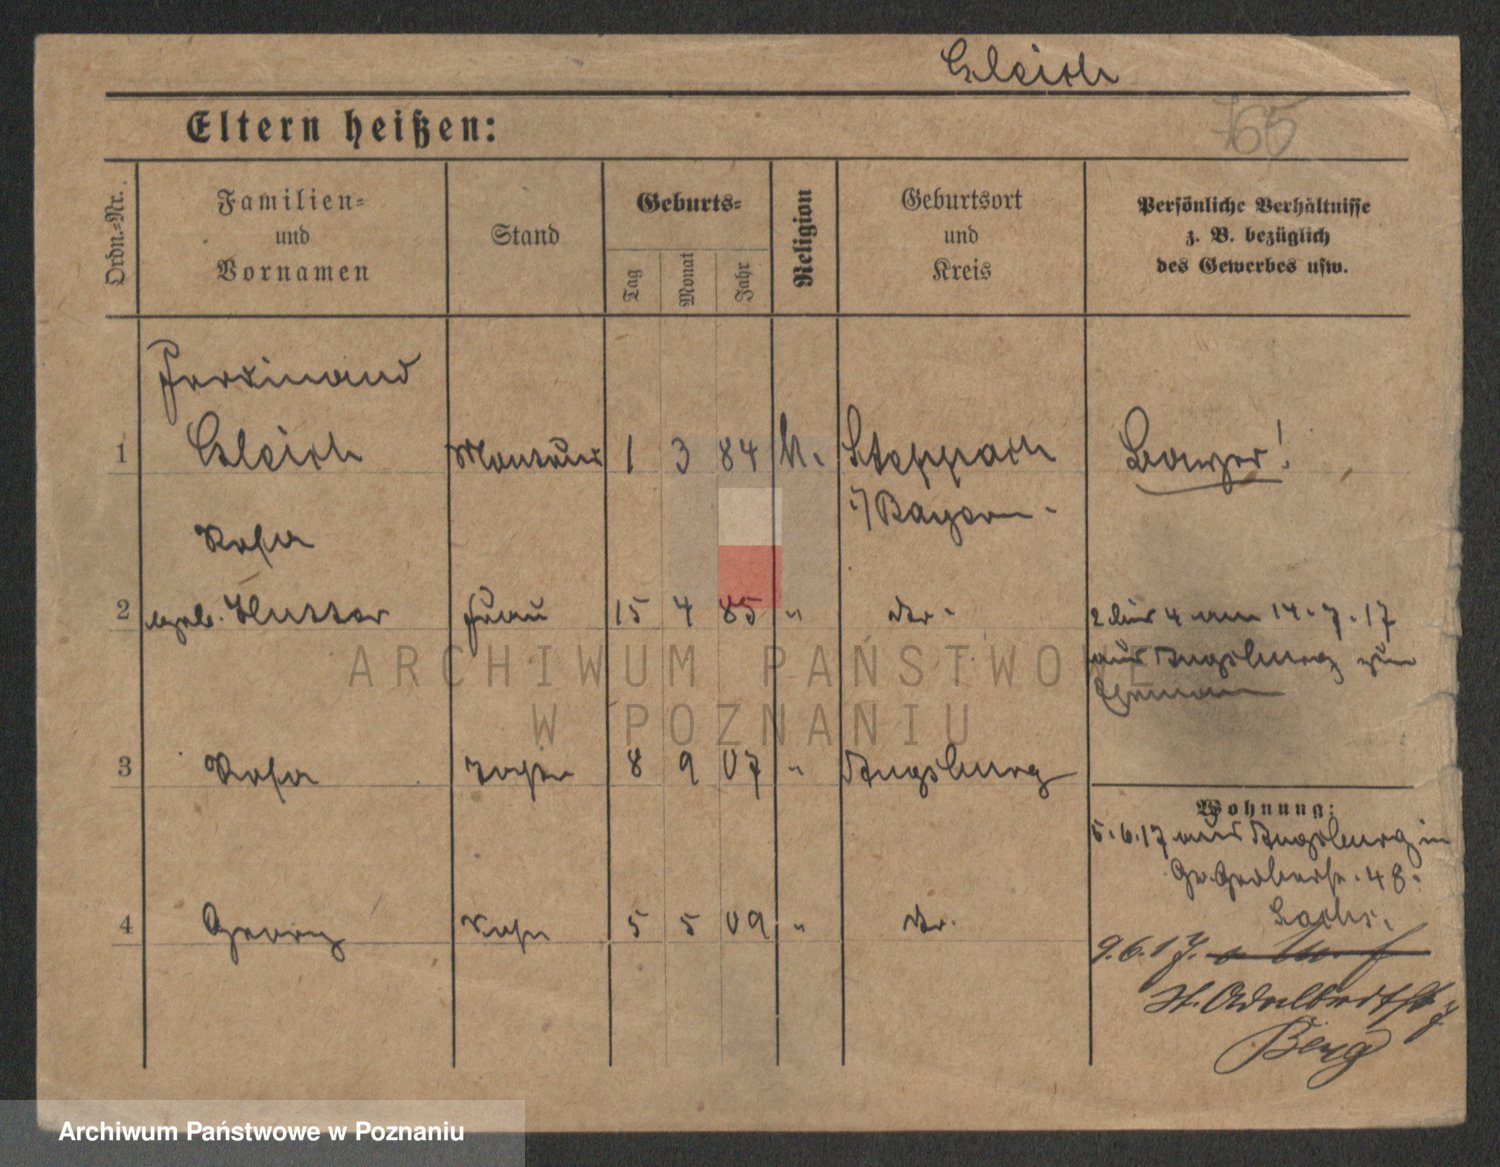 Gleich
765
Eltern heißen:
Ordn.-Nr.
Familien-
und
Vornamen
Stand
Geburts-
Tag
Monat
Jahr
Religion
Geburtsort
und
Kreis
Persönliche Verhältnisse
z. B. bezüglich
des Gewerbes usw.
Ferdinand
1 Gleich Monteur 1 3 84 k. Steppach
i/Bayern -
Rosa
2 geb. Hutter Frau 15 4 85 " do - 2 bis 4 am 14.7.17
aus Augsburg zum
Ehemann
3 Rosa Tochter 8 9 07 " Augsburg
Wohnung:
5.6.17 aus Augsburg in
Gr. Gerberstr. 48.
4 Georg Sohn 5 5 09 " do.
9.6.17.
St. Adalbertstr
Berg
ARCHIWUM PAŃSTWOWE
W POZNANIU
Archiwum Państwowe w Poznaniu